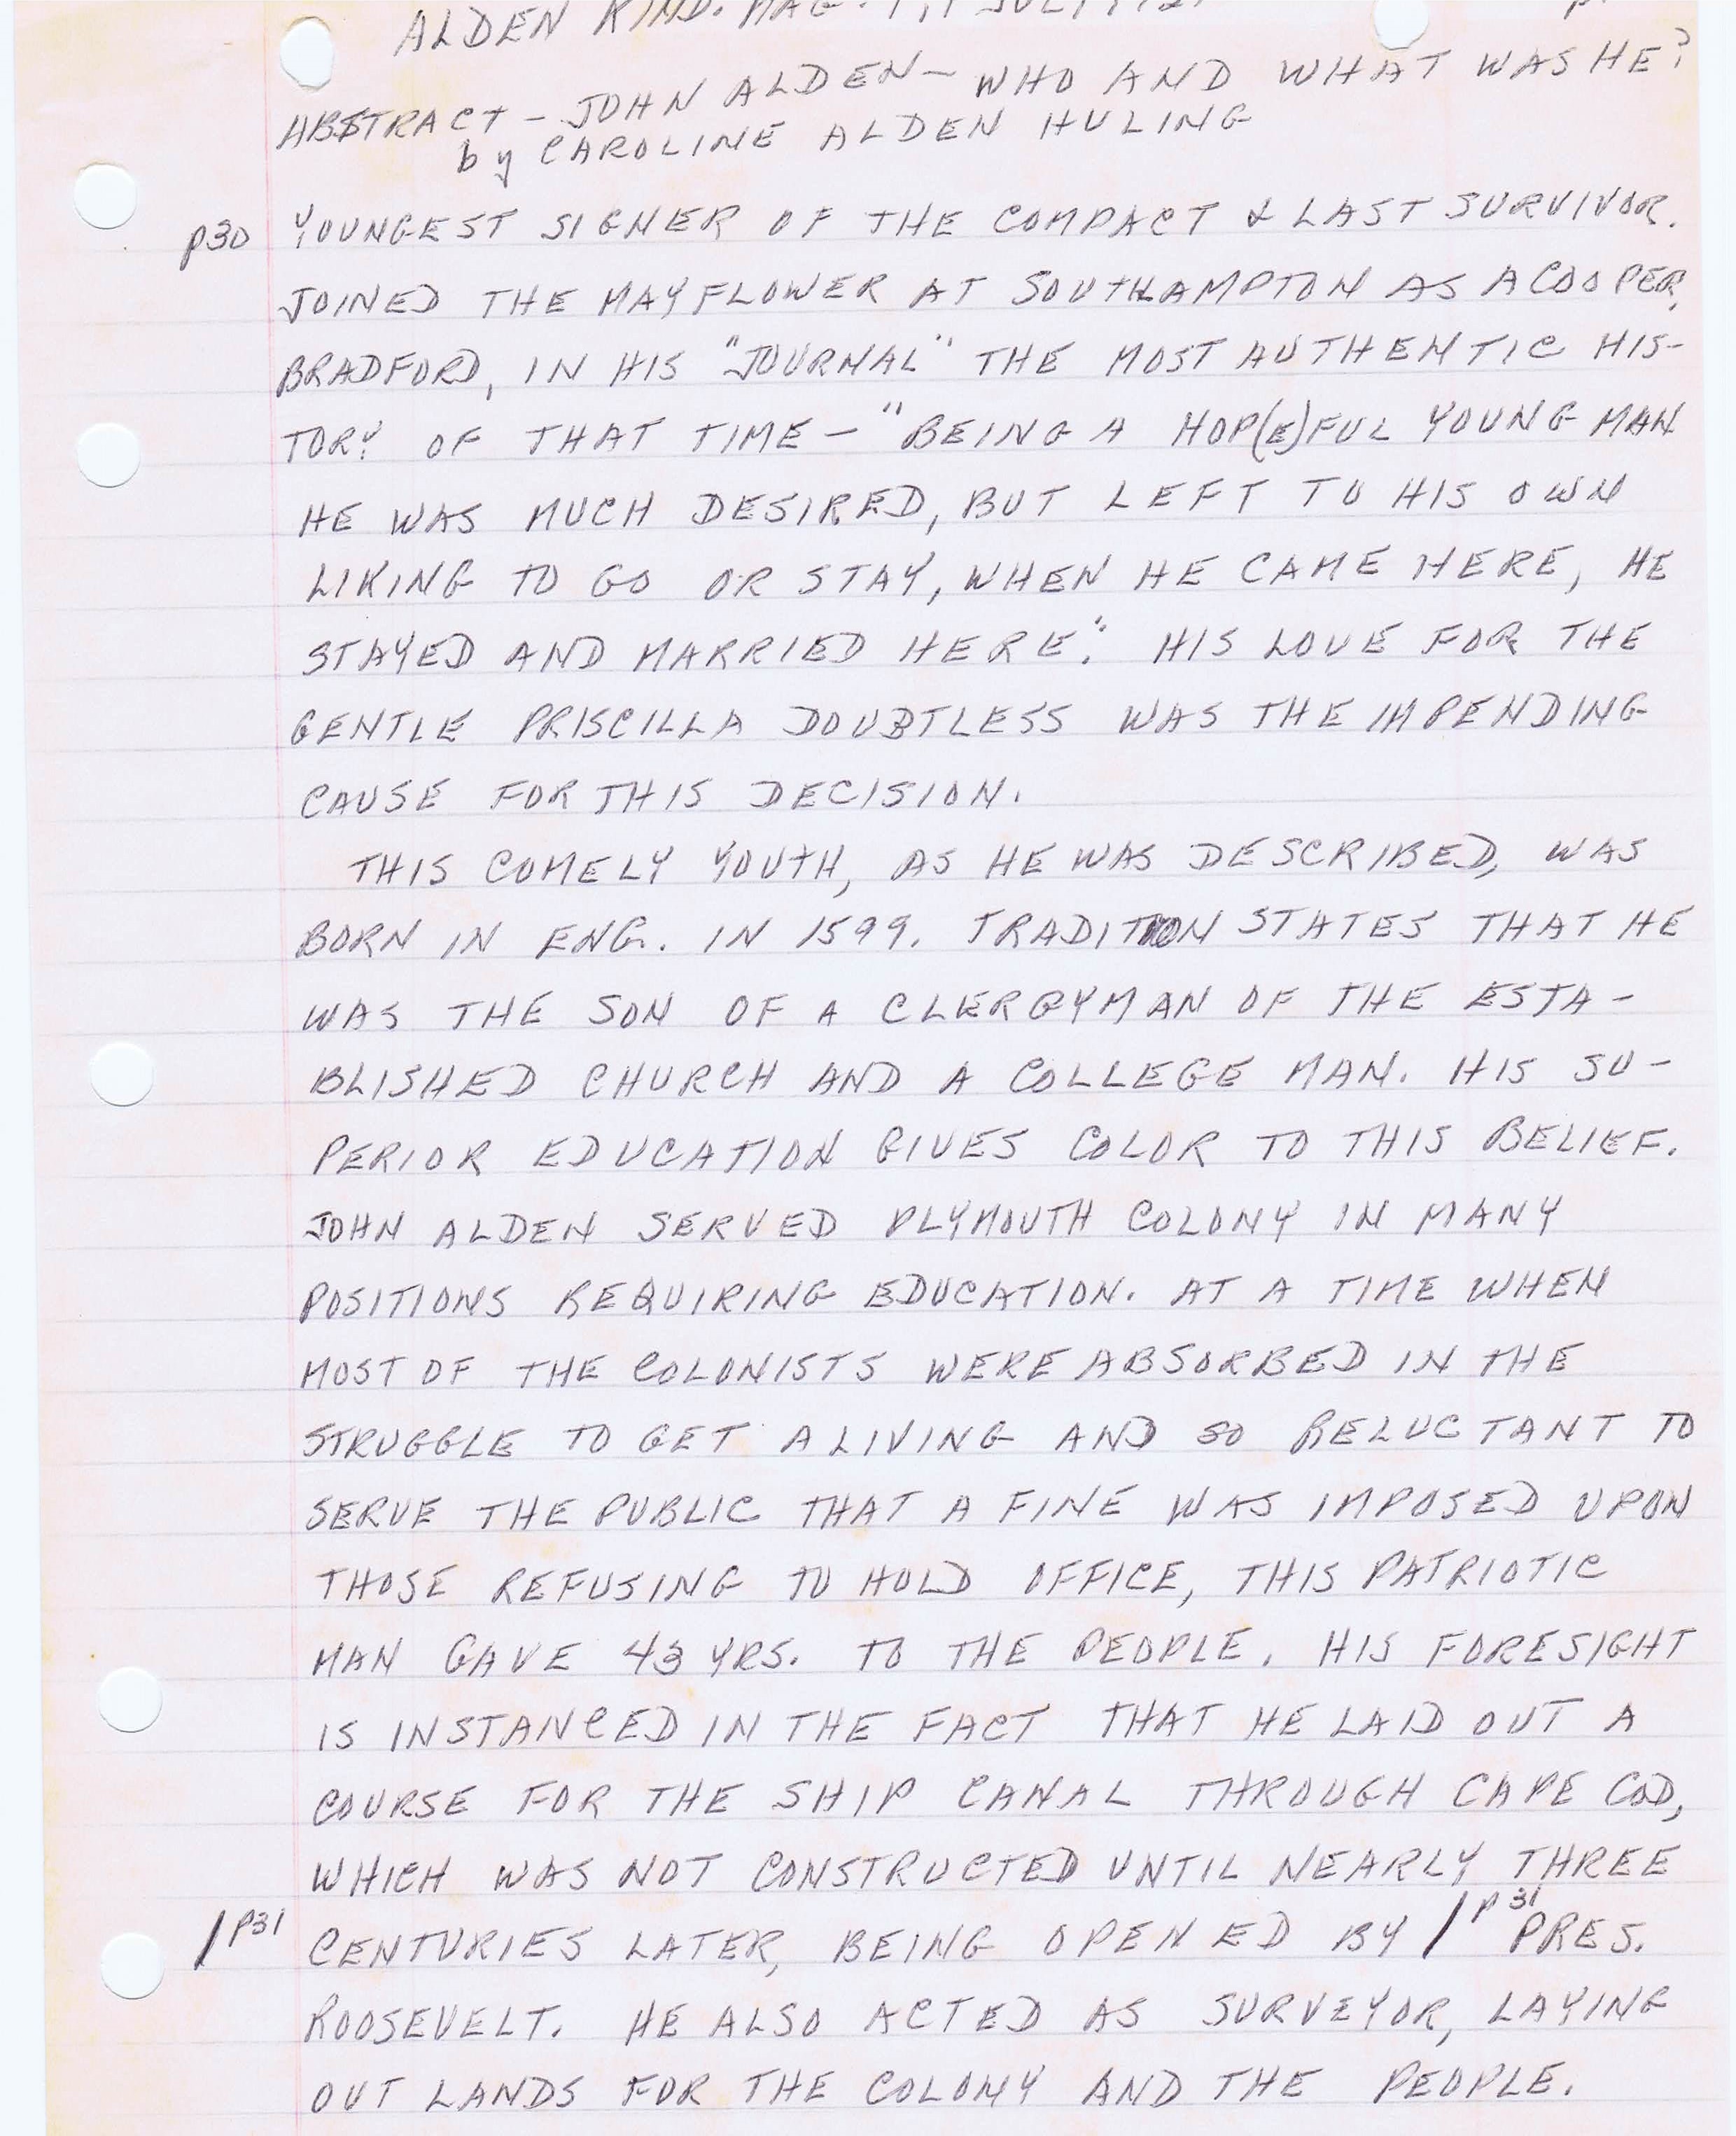 ALDEN KIND. MAG.
ABSTRACT - JOHN ALDEN - WHO AND WHAT WAS HE?
by CAROLINE ALDEN HULING
p30 YOUNGEST SIGNER OF THE COMPACT & LAST SURVIVOR.
JOINED THE MAYFLOWER AT SOUTHAMPTON AS A COOPER.
BRADFORD, IN HIS "JOURNAL" THE MOST AUTHENTIC HIS-
TORY OF THAT TIME - "BEING A HOP(E)FUL YOUNG MAN
HE WAS MUCH DESIRED, BUT LEFT TO HIS OWN
LIKING TO GO OR STAY, WHEN HE CAME HERE, HE
STAYED AND MARRIED HERE." HIS LOVE FOR THE
GENTLE PRISCILLA DOUBTLESS WAS THE IMPENDING
CAUSE FOR THIS DECISION.
THIS COMELY YOUTH, AS HE WAS DESCRIBED, WAS
BORN IN ENG. IN 1599. TRADITION STATES THAT HE
WAS THE SON OF A CLERGYMAN OF THE ESTA-
BLISHED CHURCH AND A COLLEGE MAN. HIS SU-
PERIOR EDUCATION GIVES COLOR TO THIS BELIEF.
JOHN ALDEN SERVED PLYMOUTH COLONY IN MANY
POSITIONS REQUIRING EDUCATION. AT A TIME WHEN
MOST OF THE COLONISTS WERE ABSORBED IN THE
STRUGGLE TO GET A LIVING AND SO RELUCTANT TO
SERVE THE PUBLIC THAT A FINE WAS IMPOSED UPON
THOSE REFUSING TO HOLD OFFICE, THIS PATRIOTIC
MAN GAVE 43 YRS. TO THE PEOPLE. HIS FORESIGHT
IS INSTANCED IN THE FACT THAT HE LAID OUT A
COURSE FOR THE SHIP CANAL THROUGH CAPE COD,
WHICH WAS NOT CONSTRUCTED UNTIL NEARLY THREE
/p31 CENTURIES LATER, BEING OPENED BY /p31 PRES.
ROOSEVELT. HE ALSO ACTED AS SURVEYOR, LAYING
OUT LANDS FOR THE COLONY AND THE PEOPLE.